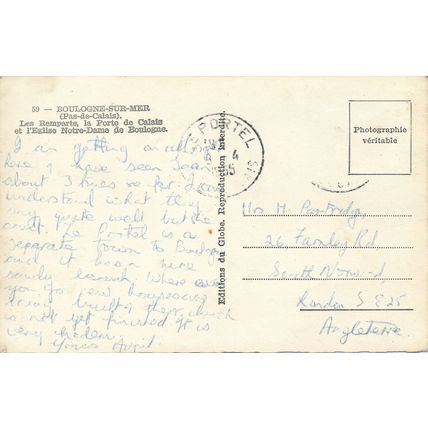 59 — BOULOGNE-SUR-MER
(Pas-de-Calais).
Les Remparts, la Porte de Calais
et l'Eglise Notre-Dame de Boulogne.
I am getting on alright
here I have seen Jean
about 3 times so far. I can
understand what they
say quite well but he
can't. Le Portel is a
separate town to Boulogne
and it has a nice
sandy beach. Where ever
you go new houses are
being built the church
is not yet finished it is
very modern.
Yours April.
Editions du Globe, Reproduction interdite.
LE PORTEL
Photographie
véritable
Mrs M. Partridge,
26 Farnley Rd
South Norwood
London S E 25
Angleterre.